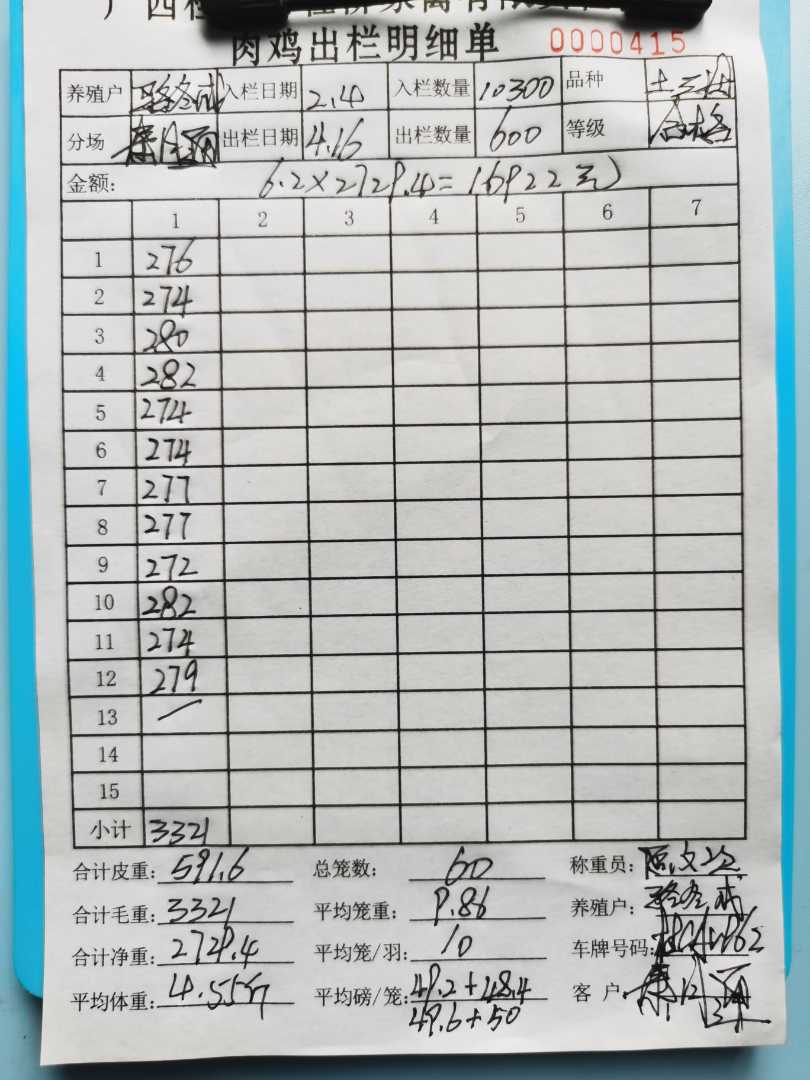 肉鸡出栏明细单 0000415
养殖户 入栏日期 2.4 入栏数量 10300 品种 土三
分场 出栏日期 4.16 出栏数量 600 等级 合格
金额: 6.2×2729.4=16922元
1 2 3 4 5 6 7
1 276
2 274
3 280
4 282
5 274
6 274
7 277
8 277
9 272
10 282
11 274
12 279
13 /
14
15
小计 3321
合计皮重: 591.6 总笼数: 60 称重员:
合计毛重: 3321 平均笼重: 9.86 养殖户:
合计净重: 2729.4 平均笼/羽: 10 车牌号码:
平均体重: 4.55斤 平均磅/笼: 49.2+48.4 客户
49.6+50